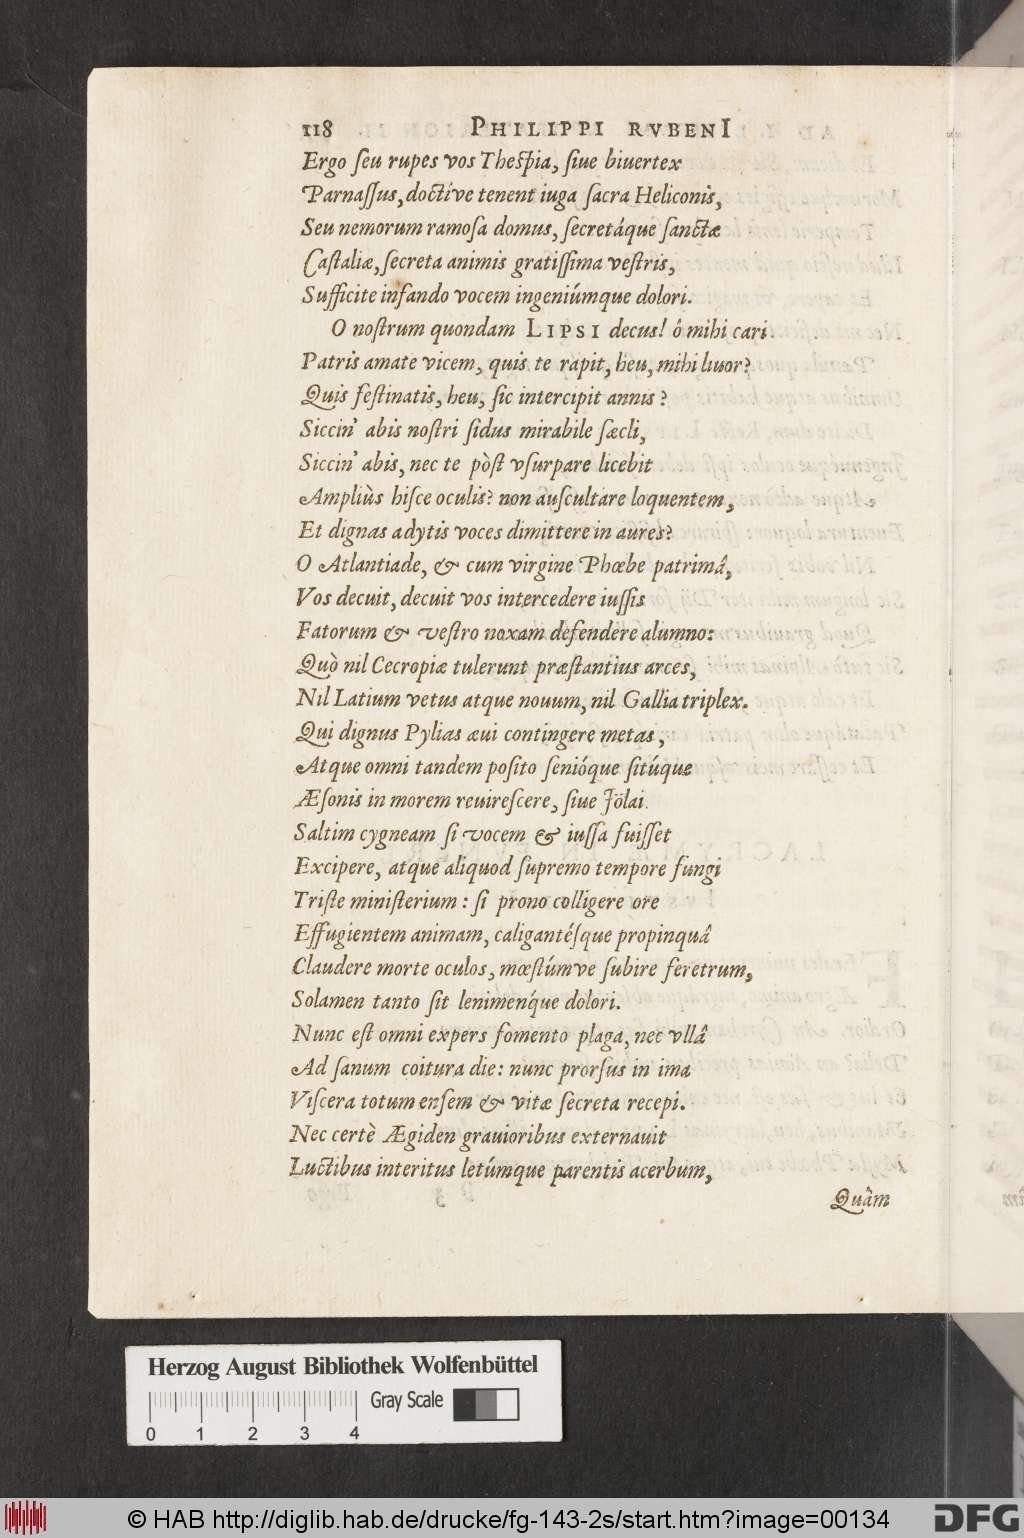 118 PHILIPPI RVBENI
Ergo ſeu rupes vos Theſpia, ſiue biuertex
Parnaſſus, doctíve tenent iuga ſacra Heliconis,
Seu nemorum ramoſa domus, ſecretáque ſanctæ
Caſtaliæ, ſecreta animis gratiſſima veſtris,
Sufficite infando vocem ingeniúmque dolori.
O noſtrum quondam LIPSI decus! ô mihi cari
Patris amate vicem, quis te rapit, heu, mihi liuor?
Quis feſtinatis, heu, ſic intercipit annis?
Siccin' abis noſtri ſidus mirabile ſæcli,
Siccin' abis, nec te pòſt vſurpare licebit
Ampliùs hiſce oculis? non auſcultare loquentem,
Et dignas adytis voces dimittere in aures?
O Atlantiade, & cum virgine Phœbe patrimâ,
Vos decuit, decuit vos intercedere iuſſis
Fatorum & veſtro noxam defendere alumno:
Quò nil Cecropiæ tulerunt præſtantius arces,
Nil Latium vetus atque nouum, nil Gallia triplex.
Qui dignus Pylias æui contingere metas,
Atque omni tandem poſito ſenióque ſitúque
Æſonis in morem reuireſcere, ſiue Jölai.
Saltim cygneam ſi vocem & iuſſa fuiſſet
Excipere, atque aliquod ſupremo tempore fungi
Triſte miniſterium: ſi prono colligere ore
Effugientem animam, caligantéſque propinquâ
Claudere morte oculos, mœſtúmve ſubire feretrum,
Solamen tanto ſit lenimenq́ue dolori.
Nunc eſt omni expers fomento plaga, nec vllâ
Ad ſanum coitura die: nunc prorſus in ima
Viſcera totum enſem & vitæ ſecreta recepi.
Nec certè Ægiden grauioribus externauit
Luctibus interitus letúmque parentis acerbum,
Quâm
Herzog August Bibliothek Wolfenbüttel
Gray Scale
0 1 2 3 4
© HAB http://diglib.hab.de/drucke/fg-143-2s/start.htm?image=00134
DFG